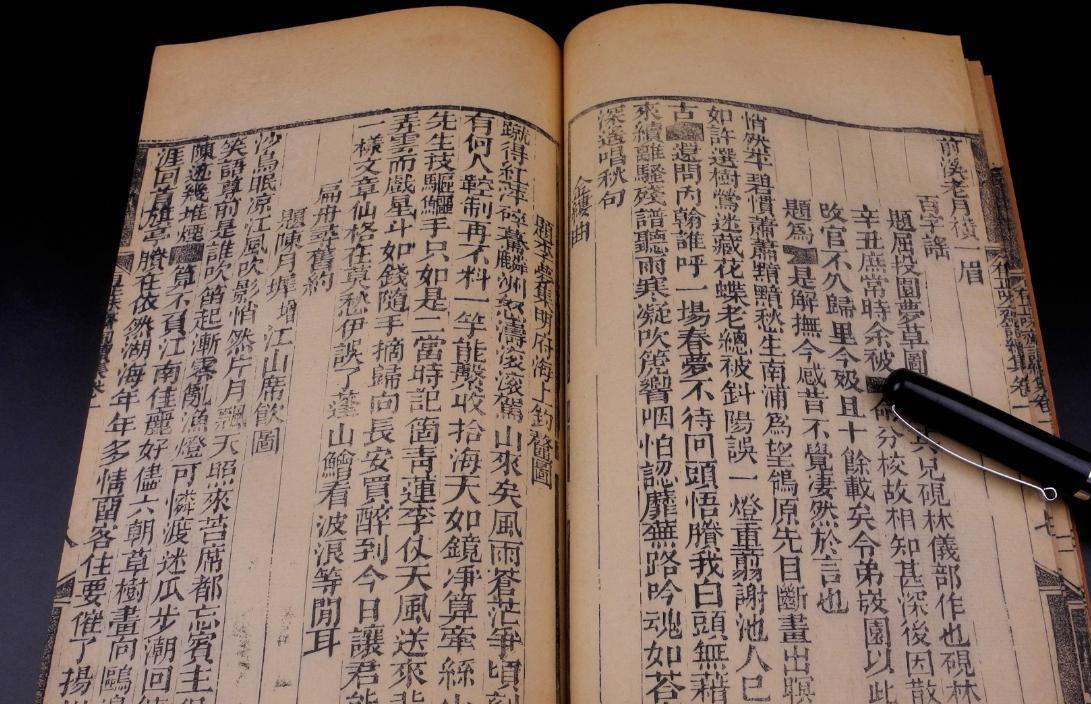 前溪老月後一眉
百字謠
題屈投園夢草圖
兄硯林儀部作也硯林
辛丑庶常時余被
分校故相知甚深後因散
改官不久歸里今歿且十餘載矣令弟嵌園以此
題爲
是解撫今感昔不覺凄然於言也
悄然苹碧慣蕭蕭黯黯愁生南浦爲望鴒原先目斷畫出暝
如許選樹鶯迷藏花蝶老總被斜陽誤一燈重翦謝池人已
古
還問內翰誰呼一場春夢不待回頭悟賸我白頭無藉
來續離騷殘譜聽雨寒凝吹篪響咽怕認蘼蕪路吟魂如荅
深遶唱秋句
金縷曲
題李夢集明府海上釣鼇圖
蹴得紅萍碎驀麟洲怒濤滚滚駕山來矣風雨蒼茫爭頃刻
有何人鞚制再不料一竿能繫收拾海天如鏡淨算牽絲
先生技驅鱷手只如是
當時記箇靑蓮李仗天風送來
弄雲而戲星斗如錢隨手摘歸向長安買醉到今日讓君能
一樣文章仙格在莫愁伊誤了蓬山鱠看波浪等閒耳
扁舟尋舊約
題陳月墀增江山席飲圖
沙鳥眠凉江風吹影悄然片月飄天照來苔席都忘賓主
笑語尊前是誰吹笛起漸零亂漁燈可憐渡迷瓜步潮回
陳迹幾堆煙
算不負江南佳麗好儘六朝草樹畫向鷗
涯回首旗亭賸在依然湖海年年多情留客住要催了揚